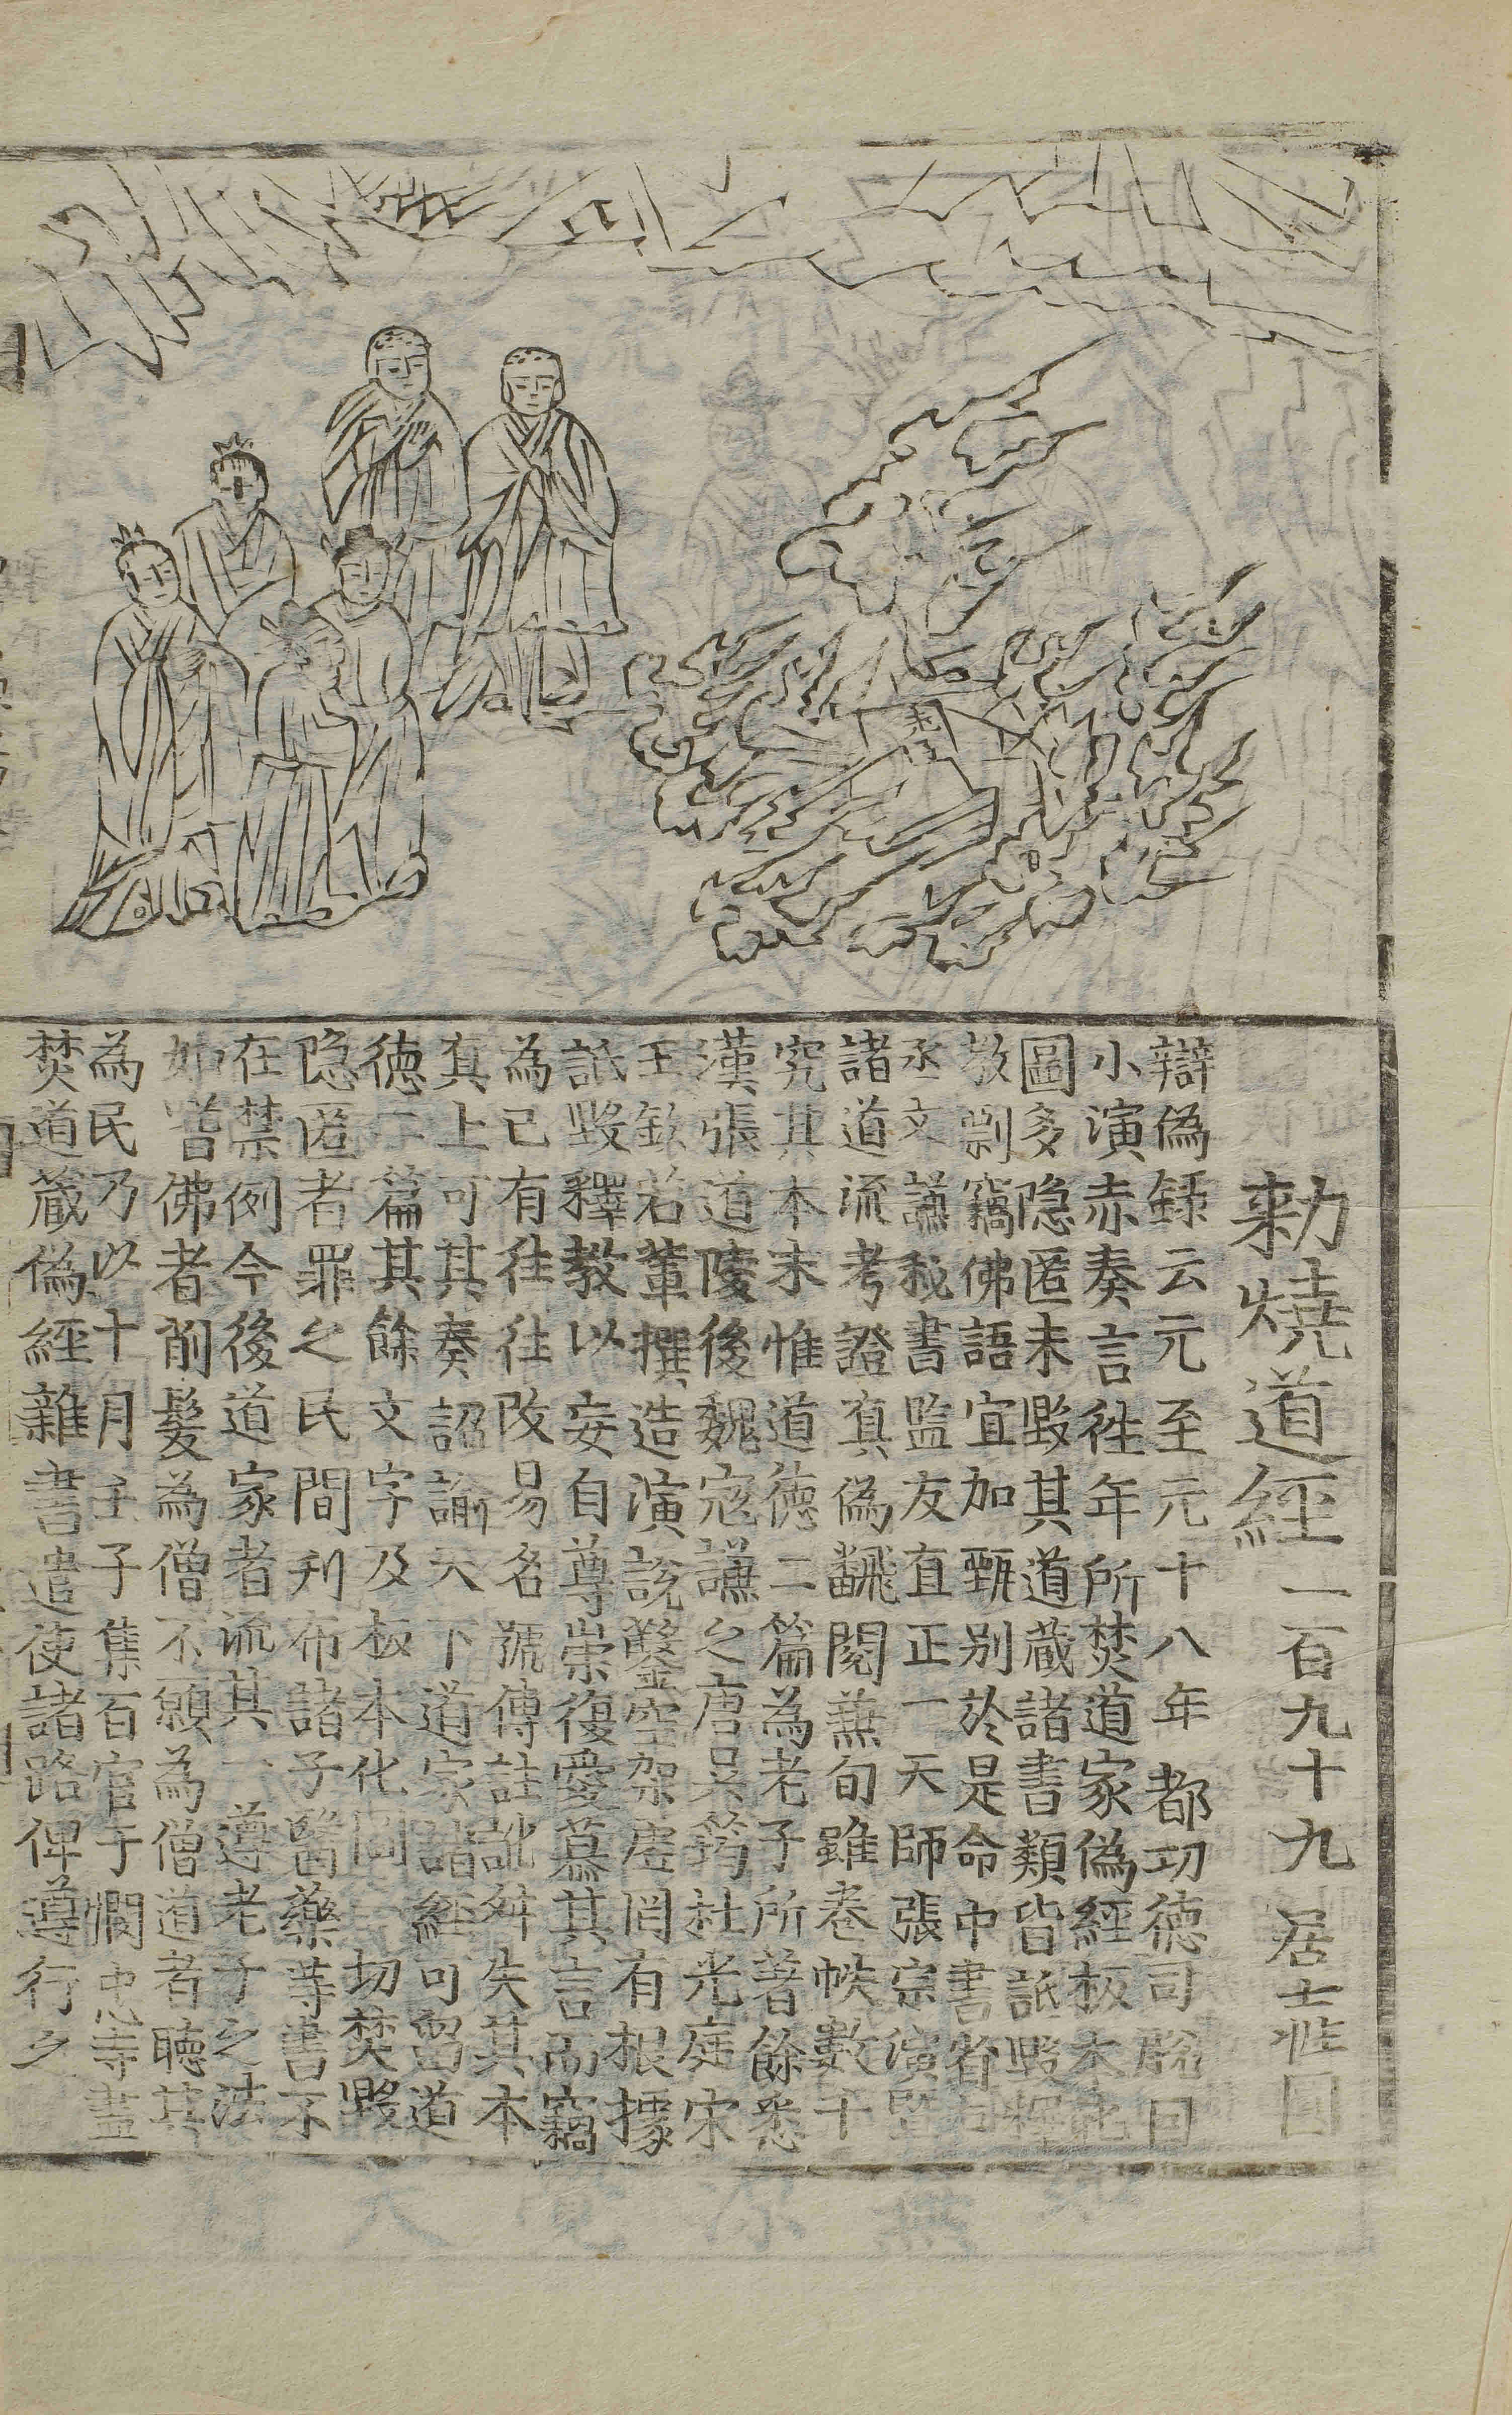 勑燒道經一百九十九　居士
辯偽錄云元至元十八年都功德司脫因
小演赤奏言往年所焚道家偽經板本化
圖多隐匿未毀其道藏諸書類皆詆毀釋
教剽竊佛語宜加甄别於是命中書省
丞文謙秘書監友直正一天師張宗演暨
諸道流考證真偽飜閱兼旬雖卷帙數千
究其本末惟道德二篇為老子所著餘悉
漢張道陵後魏寇謙之唐吳筠杜光庭宋
王欽若輩撰造演說鑿空架虚罔有根據
詆毀釋教以妄自尊崇復愛慕其言而竊
為已有往往改易名號傳註訛舛失其本
真上可其奏詔諭天下道家諸經可留道
德二篇其餘文字及板本化圖一切焚毀
隐匿者罪之民間刋布諸子醫藥等書不
在禁例今後道家者流其一遵老子之法
如嗜佛者削髮為僧不願為僧道者聽其
為民乃以十月壬子集百官于憫忠寺盡
焚道藏偽經雜書遣使諸路俾遵行夕